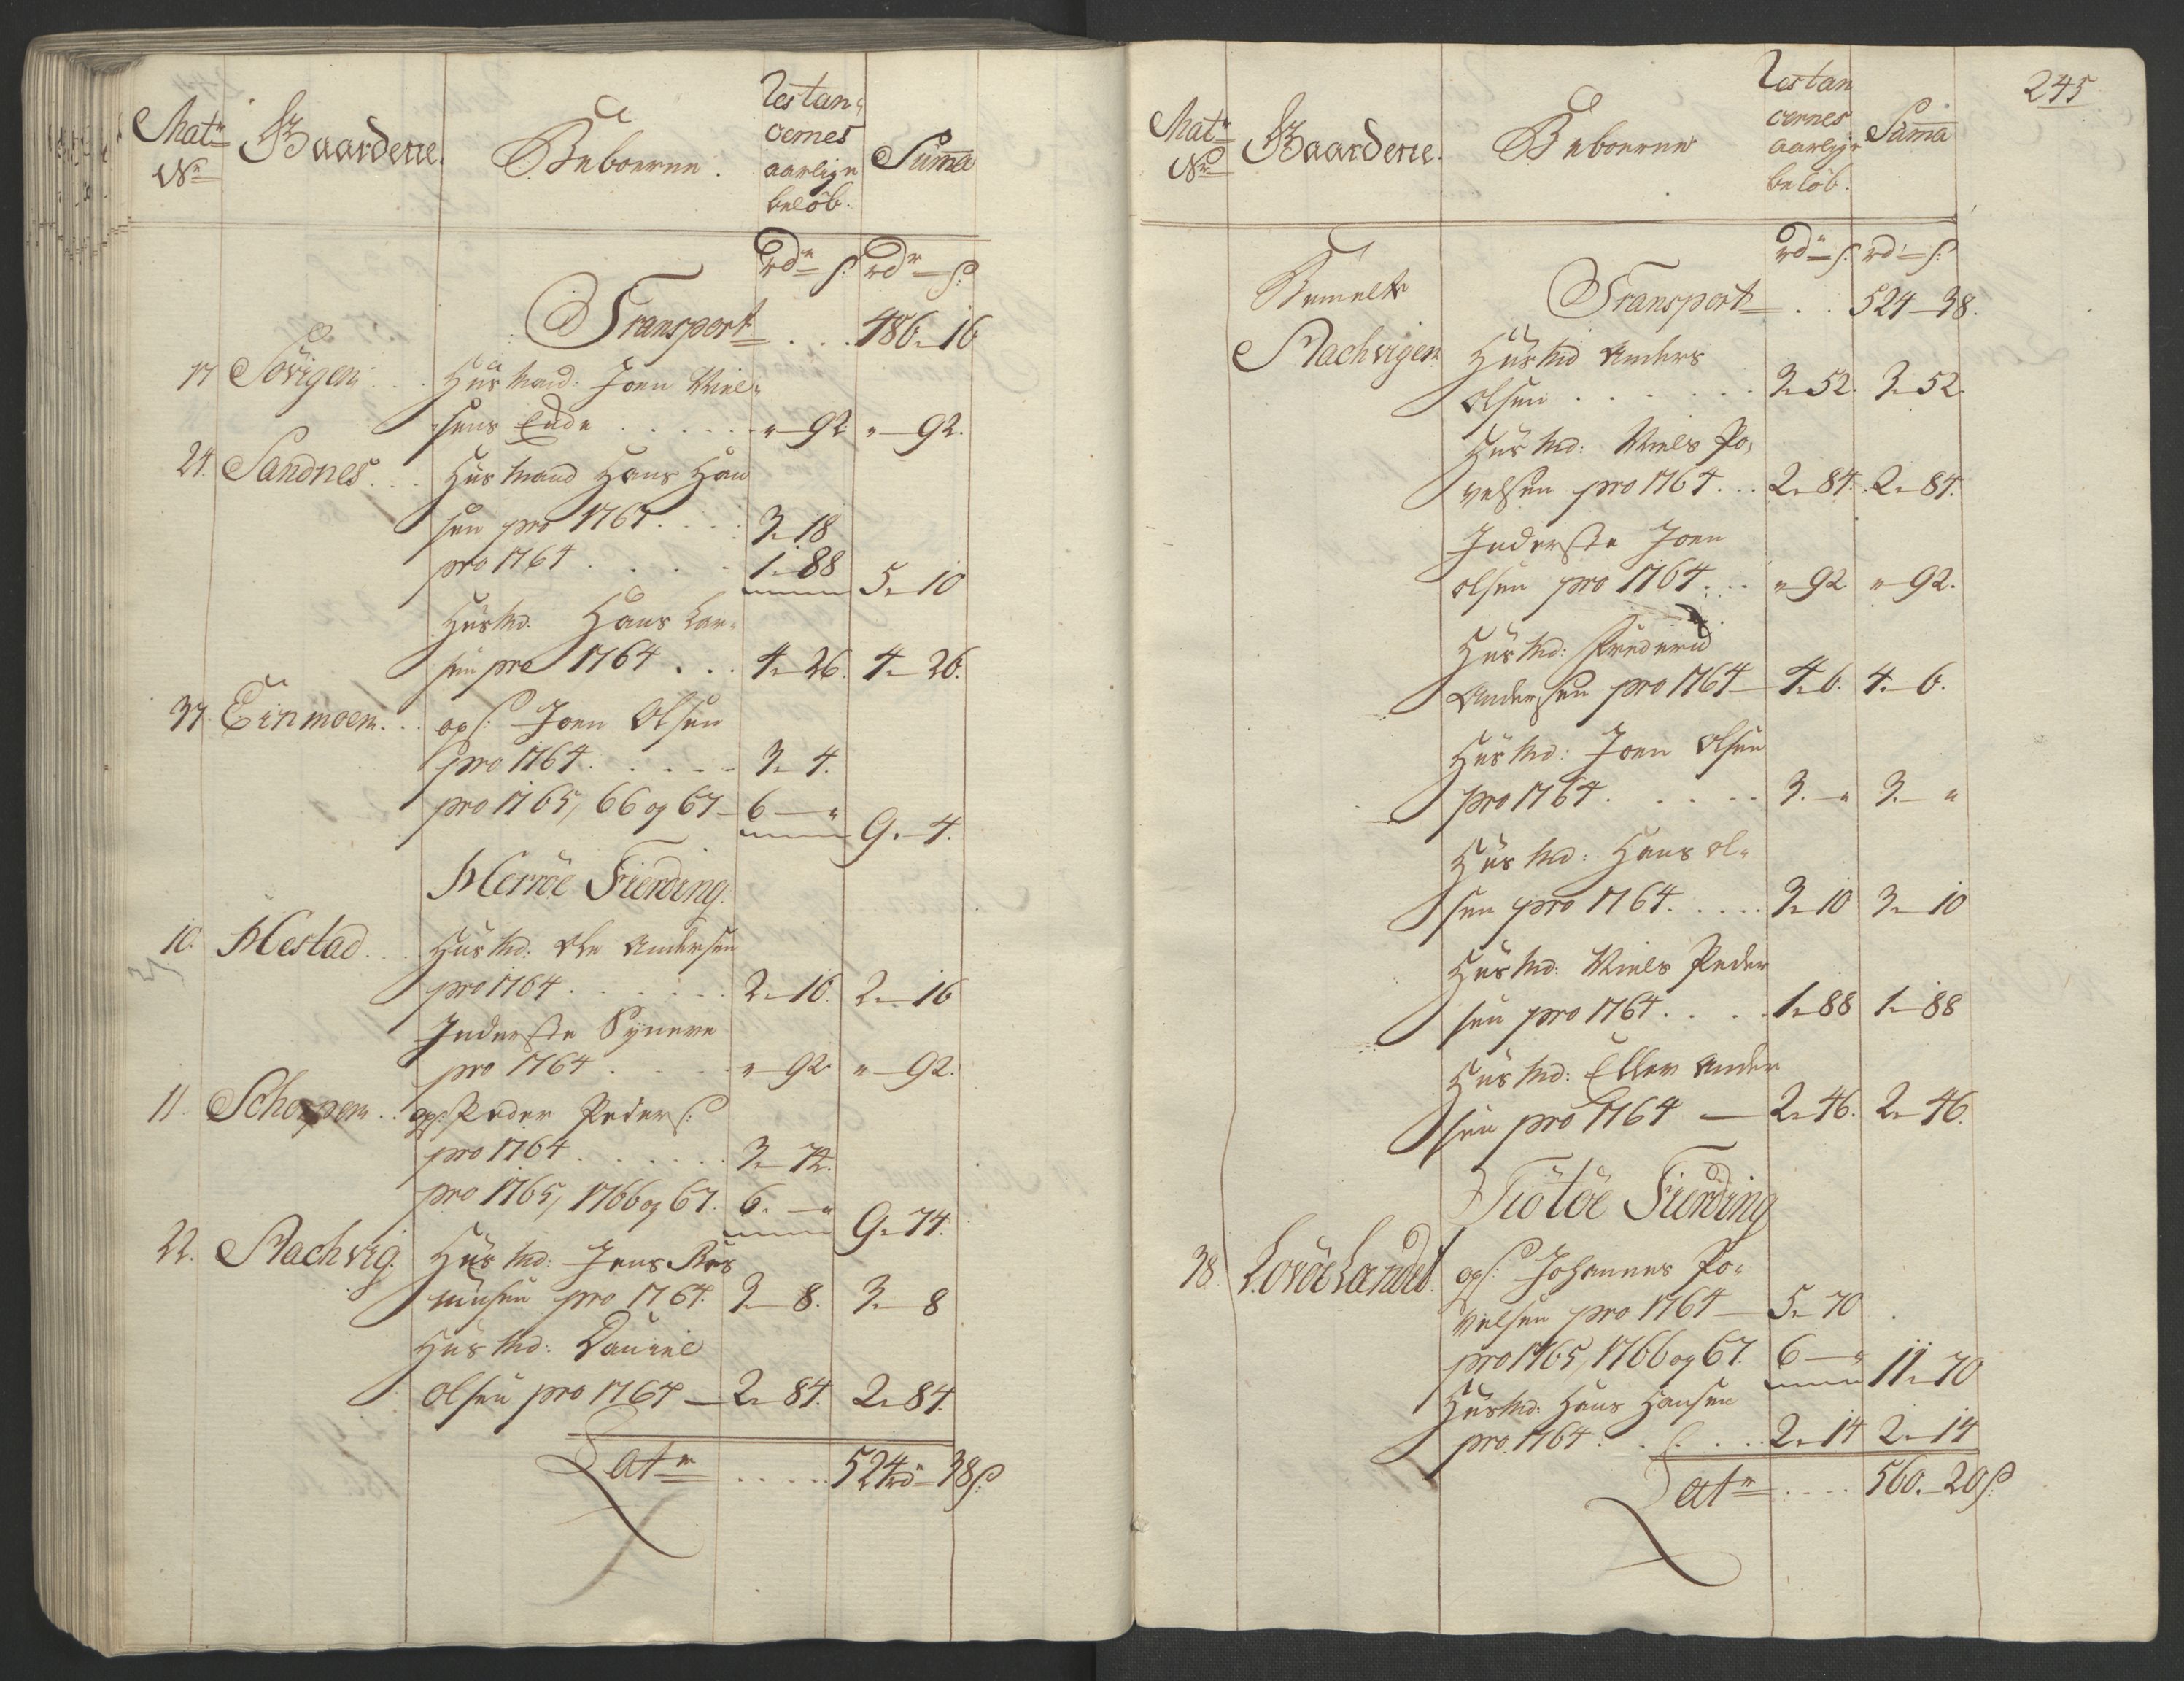 Matr Nr Gaardene. Beboerne. Restan-
cernes
aarlige
beløb. Summa
rdr ſ: rdr ſ:
Transport . . . 486 - 16
17 Søvigen . . Huusmand: Joen Niel-
sens Enke . . . . " - 92 " - 92.
24. Sandnes . . . Huusmand Hans Han
sen pro 1763 . . . . 3 - 18
pro 1764 . . . . 1 - 88 5 - 10
Huusmd. Hans Lar-
sen pro 1764 . . . 4 - 26. 4 - 26.
37. Einmoen . . . opſ: Joen Olsen
pro 1764 . . . . . 3 - 4.
pro 1765, 66 og 67 - 6 - " 9 - 4.
Herrøe Fierding.
10. Hestad . . . Huusmd: Ole Andersen
pro 1764 . . . . . . 2 - 16. 2 - 16
Inderste Synneve
pro 1764 . . . . " - 92 " - 92.
11. Schorpen . . opſ: Peder Pederſ:
pro 1764 . . . . . . 3 - 74.
pro 1765, 1766 og 67. 6. - " 9 - 74.
22. Stachvig. Huusmd: Jens Ras
musen pro 1764. 3 - 8. 3 - 8
Huusmd: Daniel
Olsen pro 1764 - 2 - 84. 2 - 84.
Latr . . . . . 524 rdr - 38 ſ:
245
Matr Nr Gaardene. Beboerne Restan
cernes
aarlige
beløb. Summa
rdr ſ: rdr ſ:
Bemelte Transport . . 524 - 38.
Stachvigen Huusmd Anders
Olsen . . . . . . . 3 - 52. 3 - 52.
Huusmd: Niels Po-
velsen pro 1764 . . . 2 - 84. 2 - 84.
Inderste Joen
Olsen pro 1764 . . . " - 92 " - 92.
Huusmd: Friderich
Andersen pro 1764 - 4 - 6. 4 - 6.
Huusmd: Joen Olsen
pro 1764 . . . . . 3. - " 3. - "
Huusmd: Hans Ol-
sen pro 1764 . . . . . 3 - 10 3 - 10
Huusmd: Niels Peder
sen pro 1764 . . . . 1 - 88 1 - 88
Huusmd: Eller Ander
sen pro 1764 - 2 - 46. 2 - 46.
Tiøtøe Fierding
38. Lovøe Landet. opſ: Johannes Po-
velsen pro 1764 - 5 - 70
pro 1765, 1766 og 67. 6 - " 11 - 70
Huusmd: Hans Hansen
pro 1764 . . . . . 2 - 14 2 - 14
Latr . . . . 560. - 20 ſ: